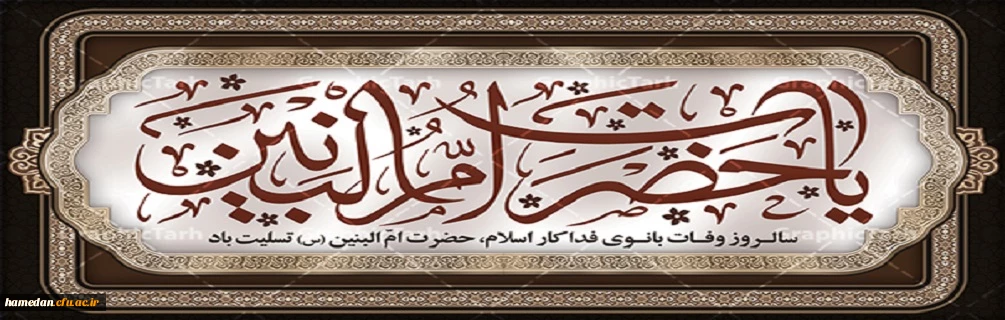 یا حضرت امّ البنین
سالروز وفات بانوی فداکار اسلام، حضرت امّ البنین (س) تسلیت باد
GraphicTarh
hamedan.cfu.ac.ir